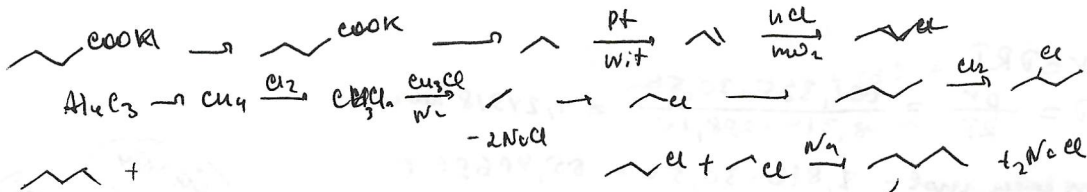 COOH → COOK → Pt → HCl → Cl
Al4C3 → CH4 Cl2 → CH3Cl CH3Cl → → Cl → Cl2 → Cl
-2NaCl
+ Cl + Cl Na → + 2NaCl